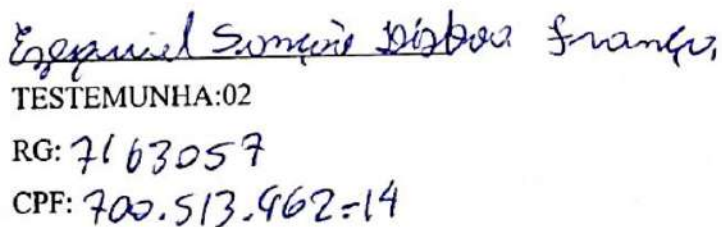 Ezequiel Simeão Lisboa França
TESTEMUNHA:02
RG: 7163057
CPF: 700.513.962-14